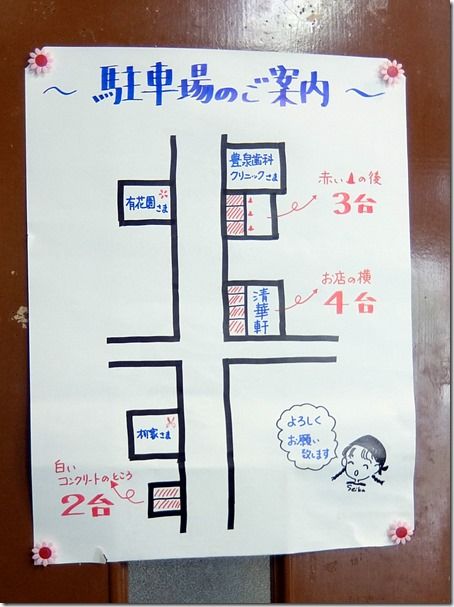 ～駐車場のご案内～
豊泉歯科
クリニックさま
有花園さま
赤い▲の後
3台
お店の横
4台
清華軒
柳家さま
白い
コンクリートのところ
2台
よろしく
お願い
致します
Seika